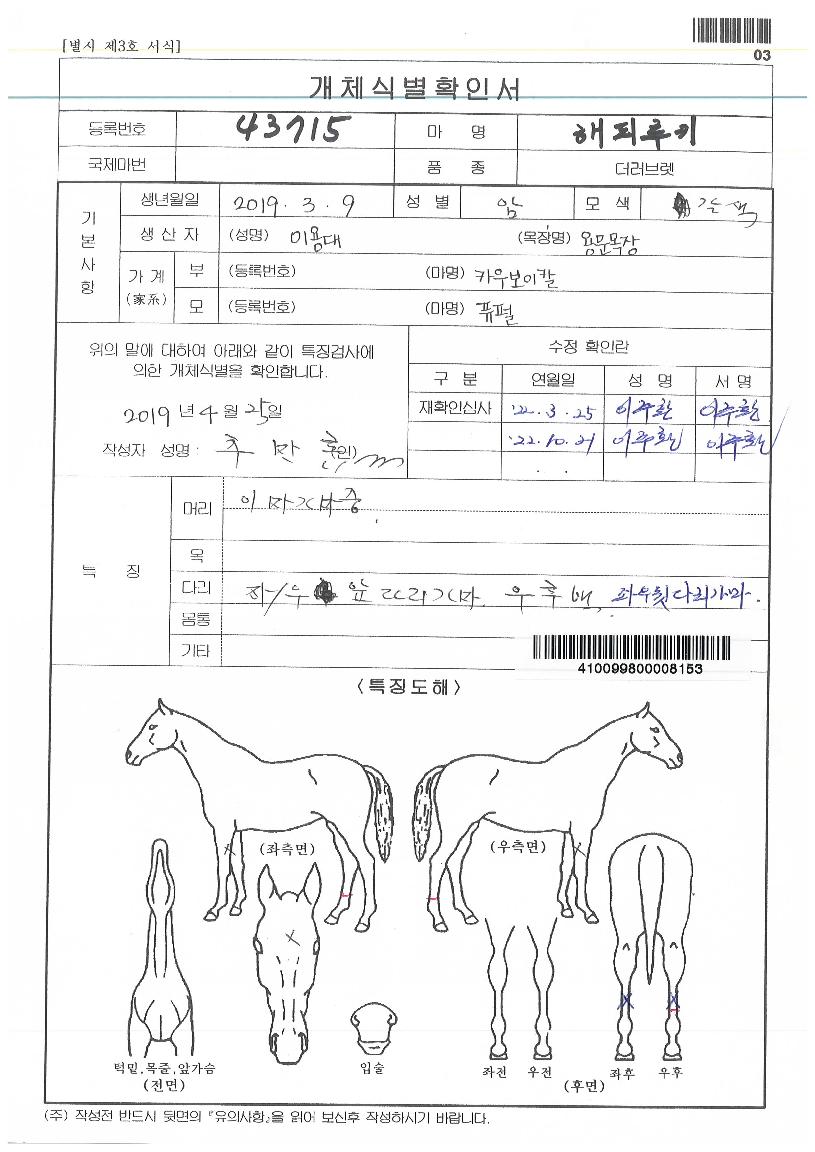 [별시 제3호 서식]
03
개체식별확인서
등록번호 43715 마 명 해피루키
국제마번 품 종 더러브렛
기본사항
생년월일 2019. 3. 9 성 별 암 모 색 갈색
생 산 자 (성명) 이용대 (목장명) 용문목장
가 계 (家系) 부 (등록번호) (마명) 카우보이칼
모 (등록번호) (마명) 퓨펄
위의 말에 대하여 아래와 같이 특징검사에
의한 개체식별을 확인합니다.
2019 년 4 월 25일
작성자 성명 : 추 만 (인)
수정 확인란
구 분 연월일 성 명 서 명
재확인심사 '22. 3. 25 이주환 이주환
'22. 10. 21 이주환 이주환
특 징
머리 이마가마중
목
다리 좌/우 앞다리가마. 우후백, 좌우뒷다리가마.
몸통
기타
410099800008153
<특징도해>
(좌측면) (우측면)
턱밑,목줄,앞가슴
(전면)
입술
좌전 우전
(후면)
좌후 우후
(주) 작성전 반드시 뒷면의 『유의사항』을 읽어 보신후 작성하시기 바랍니다.